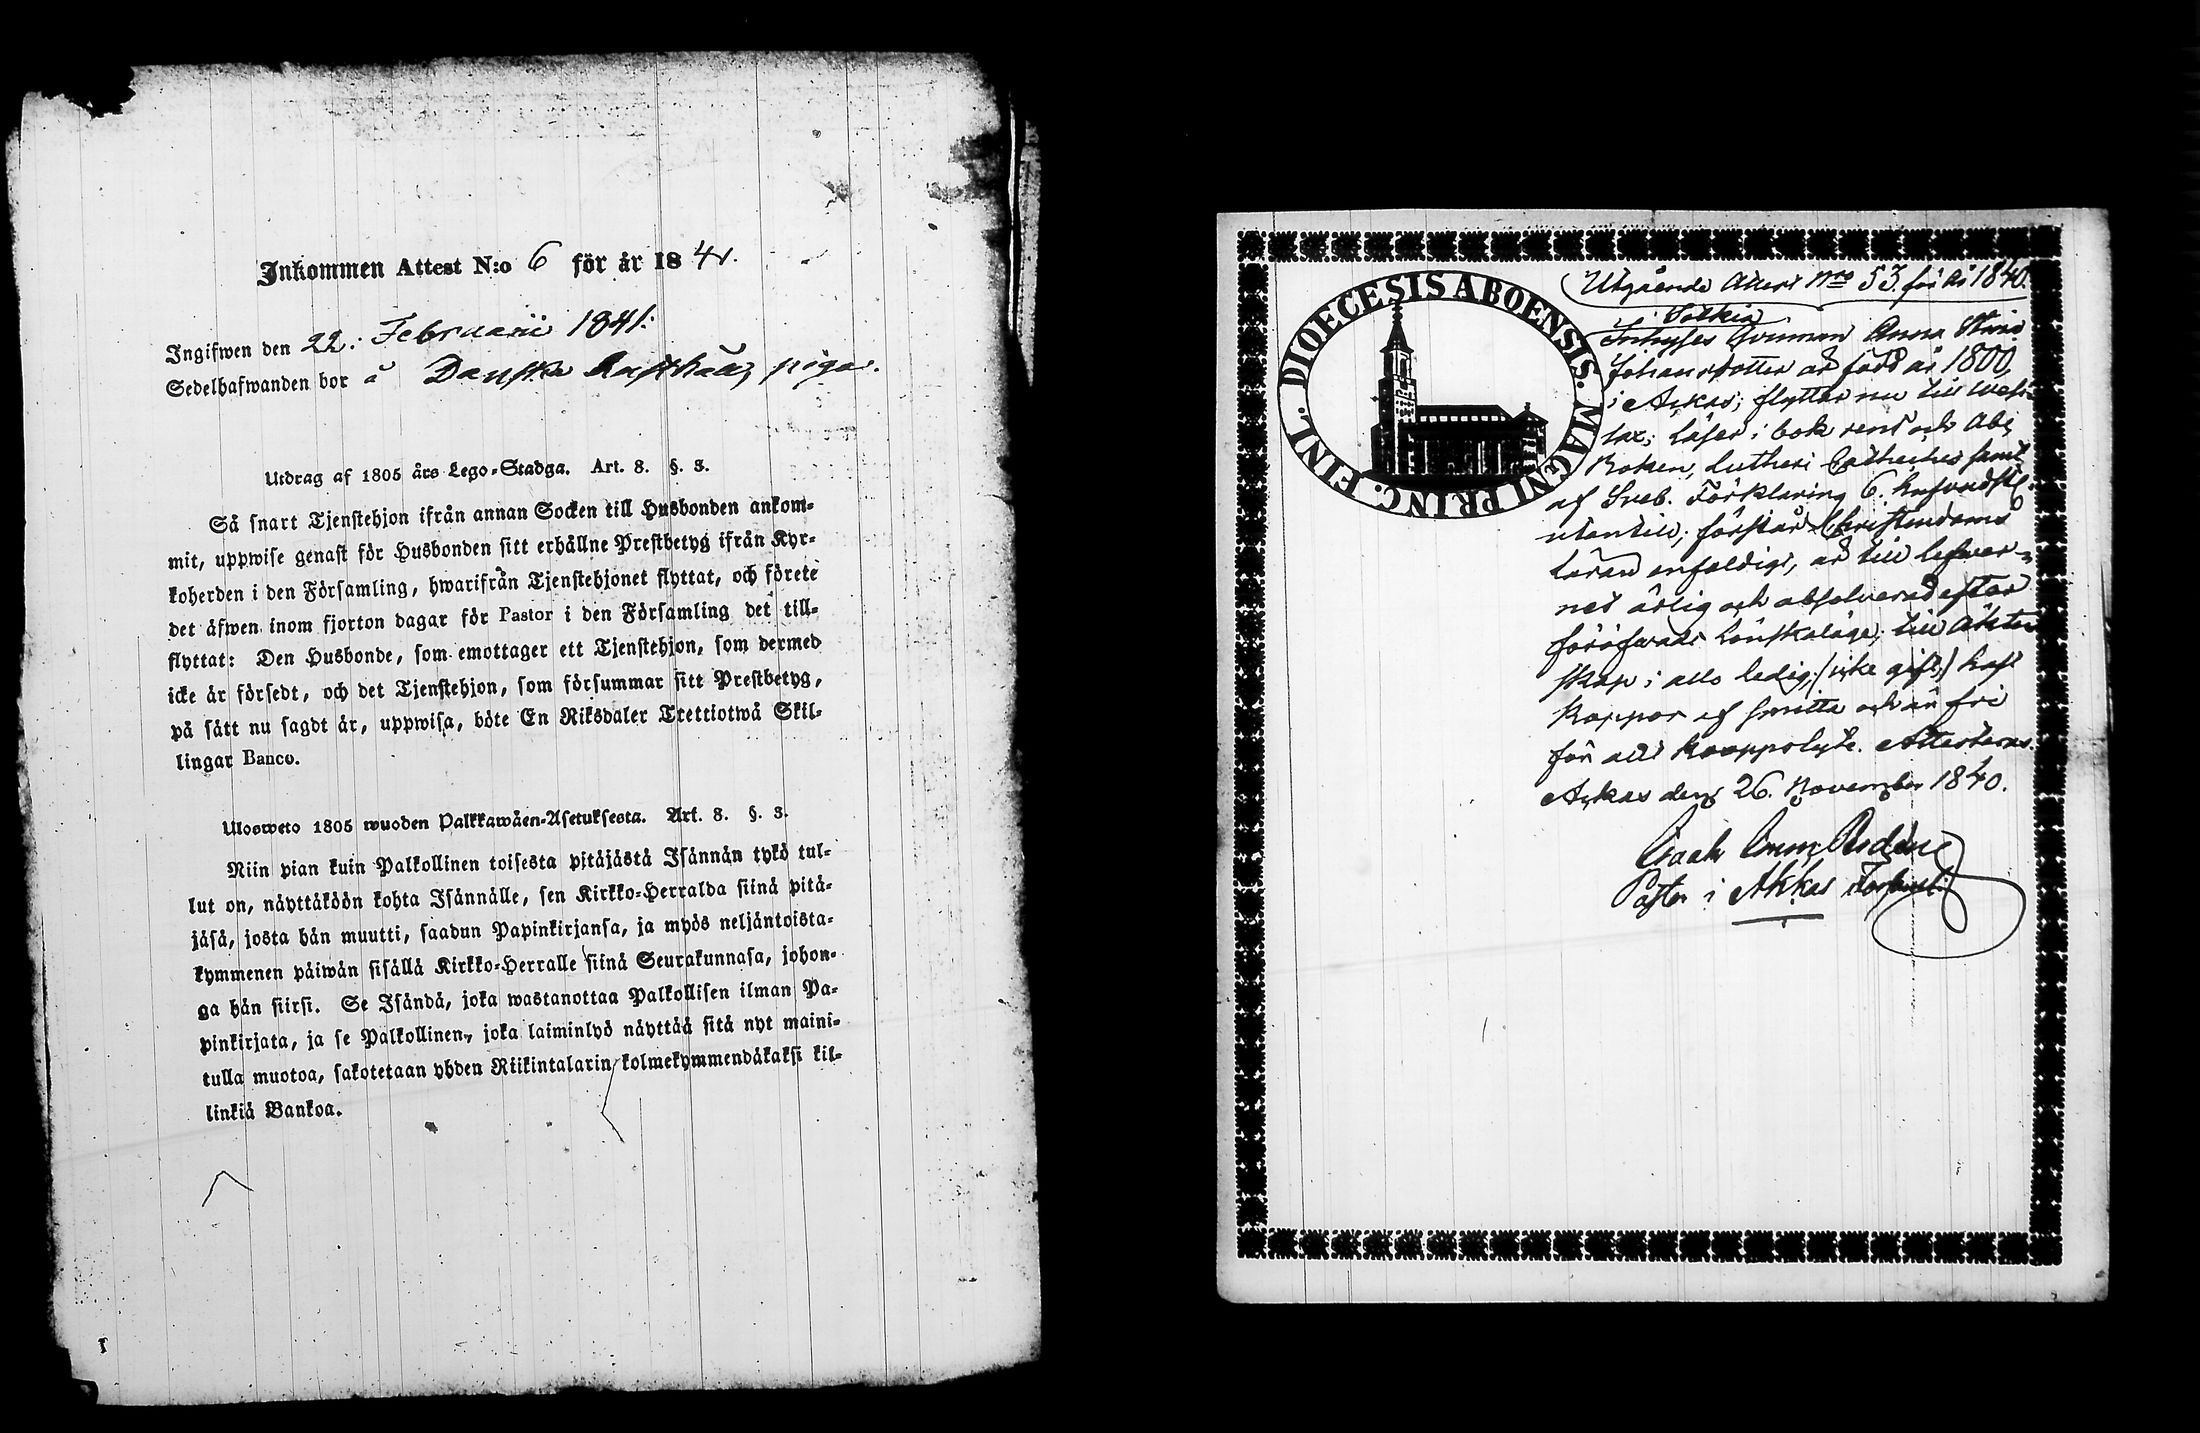 Inkommen Attest N:o 6 för år 1841.
Ingifwen den 22: Februarii 1841:
Sedelhafwanden bor å Danska Rusthåll, piga.
Utdrag af 1805 års Lego-Stadga. Art. 8. §. 3.
Så snart Tjenstehjon ifrån annan Socken till Husbonden ankom-
mit, uppwise genast för Husbonden sitt erhållne Prestbetyg ifrån Kyr-
koherden i den Församling, hwarifrån Tjenstehjonet flyttat, och förete
det äfwen inom fjorton dagar för Pastor i den Församling det till-
flyttat: Den Husbonde, som emottager ett Tjenstehjon, som dermed
icke är försedt, och det Tjenstehjon, som försummar sitt Prestbetyg,
på sätt nu sagdt är, uppwisa, böte En Riksdaler Trettiotwå Skil-
lingar Banco.
Ulosweto 1805 wuoden Palkkawäen-Asetuksesta. Art. 8. §. 3.
Niin pian kuin Palkollinen toisesta pitäjästä Isännän tykö tul-
lut on, näyttäköön kohta Isännälle, sen Kirkko-Herralda siinä pitä-
jäsä, josta hän muutti, saadun Papinkirjansa, ja myös neljäntoista-
kymmenen päiwän sisällä Kirkko-Herralle siinä Seurakunnasa, johon-
ga hän siirsi. Se Isändä, joka wastanottaa Palkollisen ilman Pa-
pinkirjata, ja se Palkollinen, joka laiminlyö näyttää sitä nyt maini-
tulla muotoa, sakotetaan yhden Riikintalarin kolmekymmendäkaksi kil-
linkiä Bankoa.
DIOECESIS ABOENSIS. MAGNI PRINC. FINL.
Utgående Attest Nro 53 för år 1840.
Inhyses Qvinnan Anna Stina
Johansdotter är född år 1800
i Ackas; flyttar nu till
läser i bok rent och Abc
Boken, Lutheri Catheches samt
af Sveb. Förklaring 6. hufvudst.
utantill; förstår Christendoms
läran enfaldigt, är till lefwer-
net ärlig och absolverad efter
föröfwadt Lönskaläge; till Äkten
skap i allo ledig, (icke gift,) haft
koppor af smitta och är fri
för allt kropps lyte. Attesteras.
Ackas den 26. November 1840.
Isaak
Pastor i Akkas Församl: